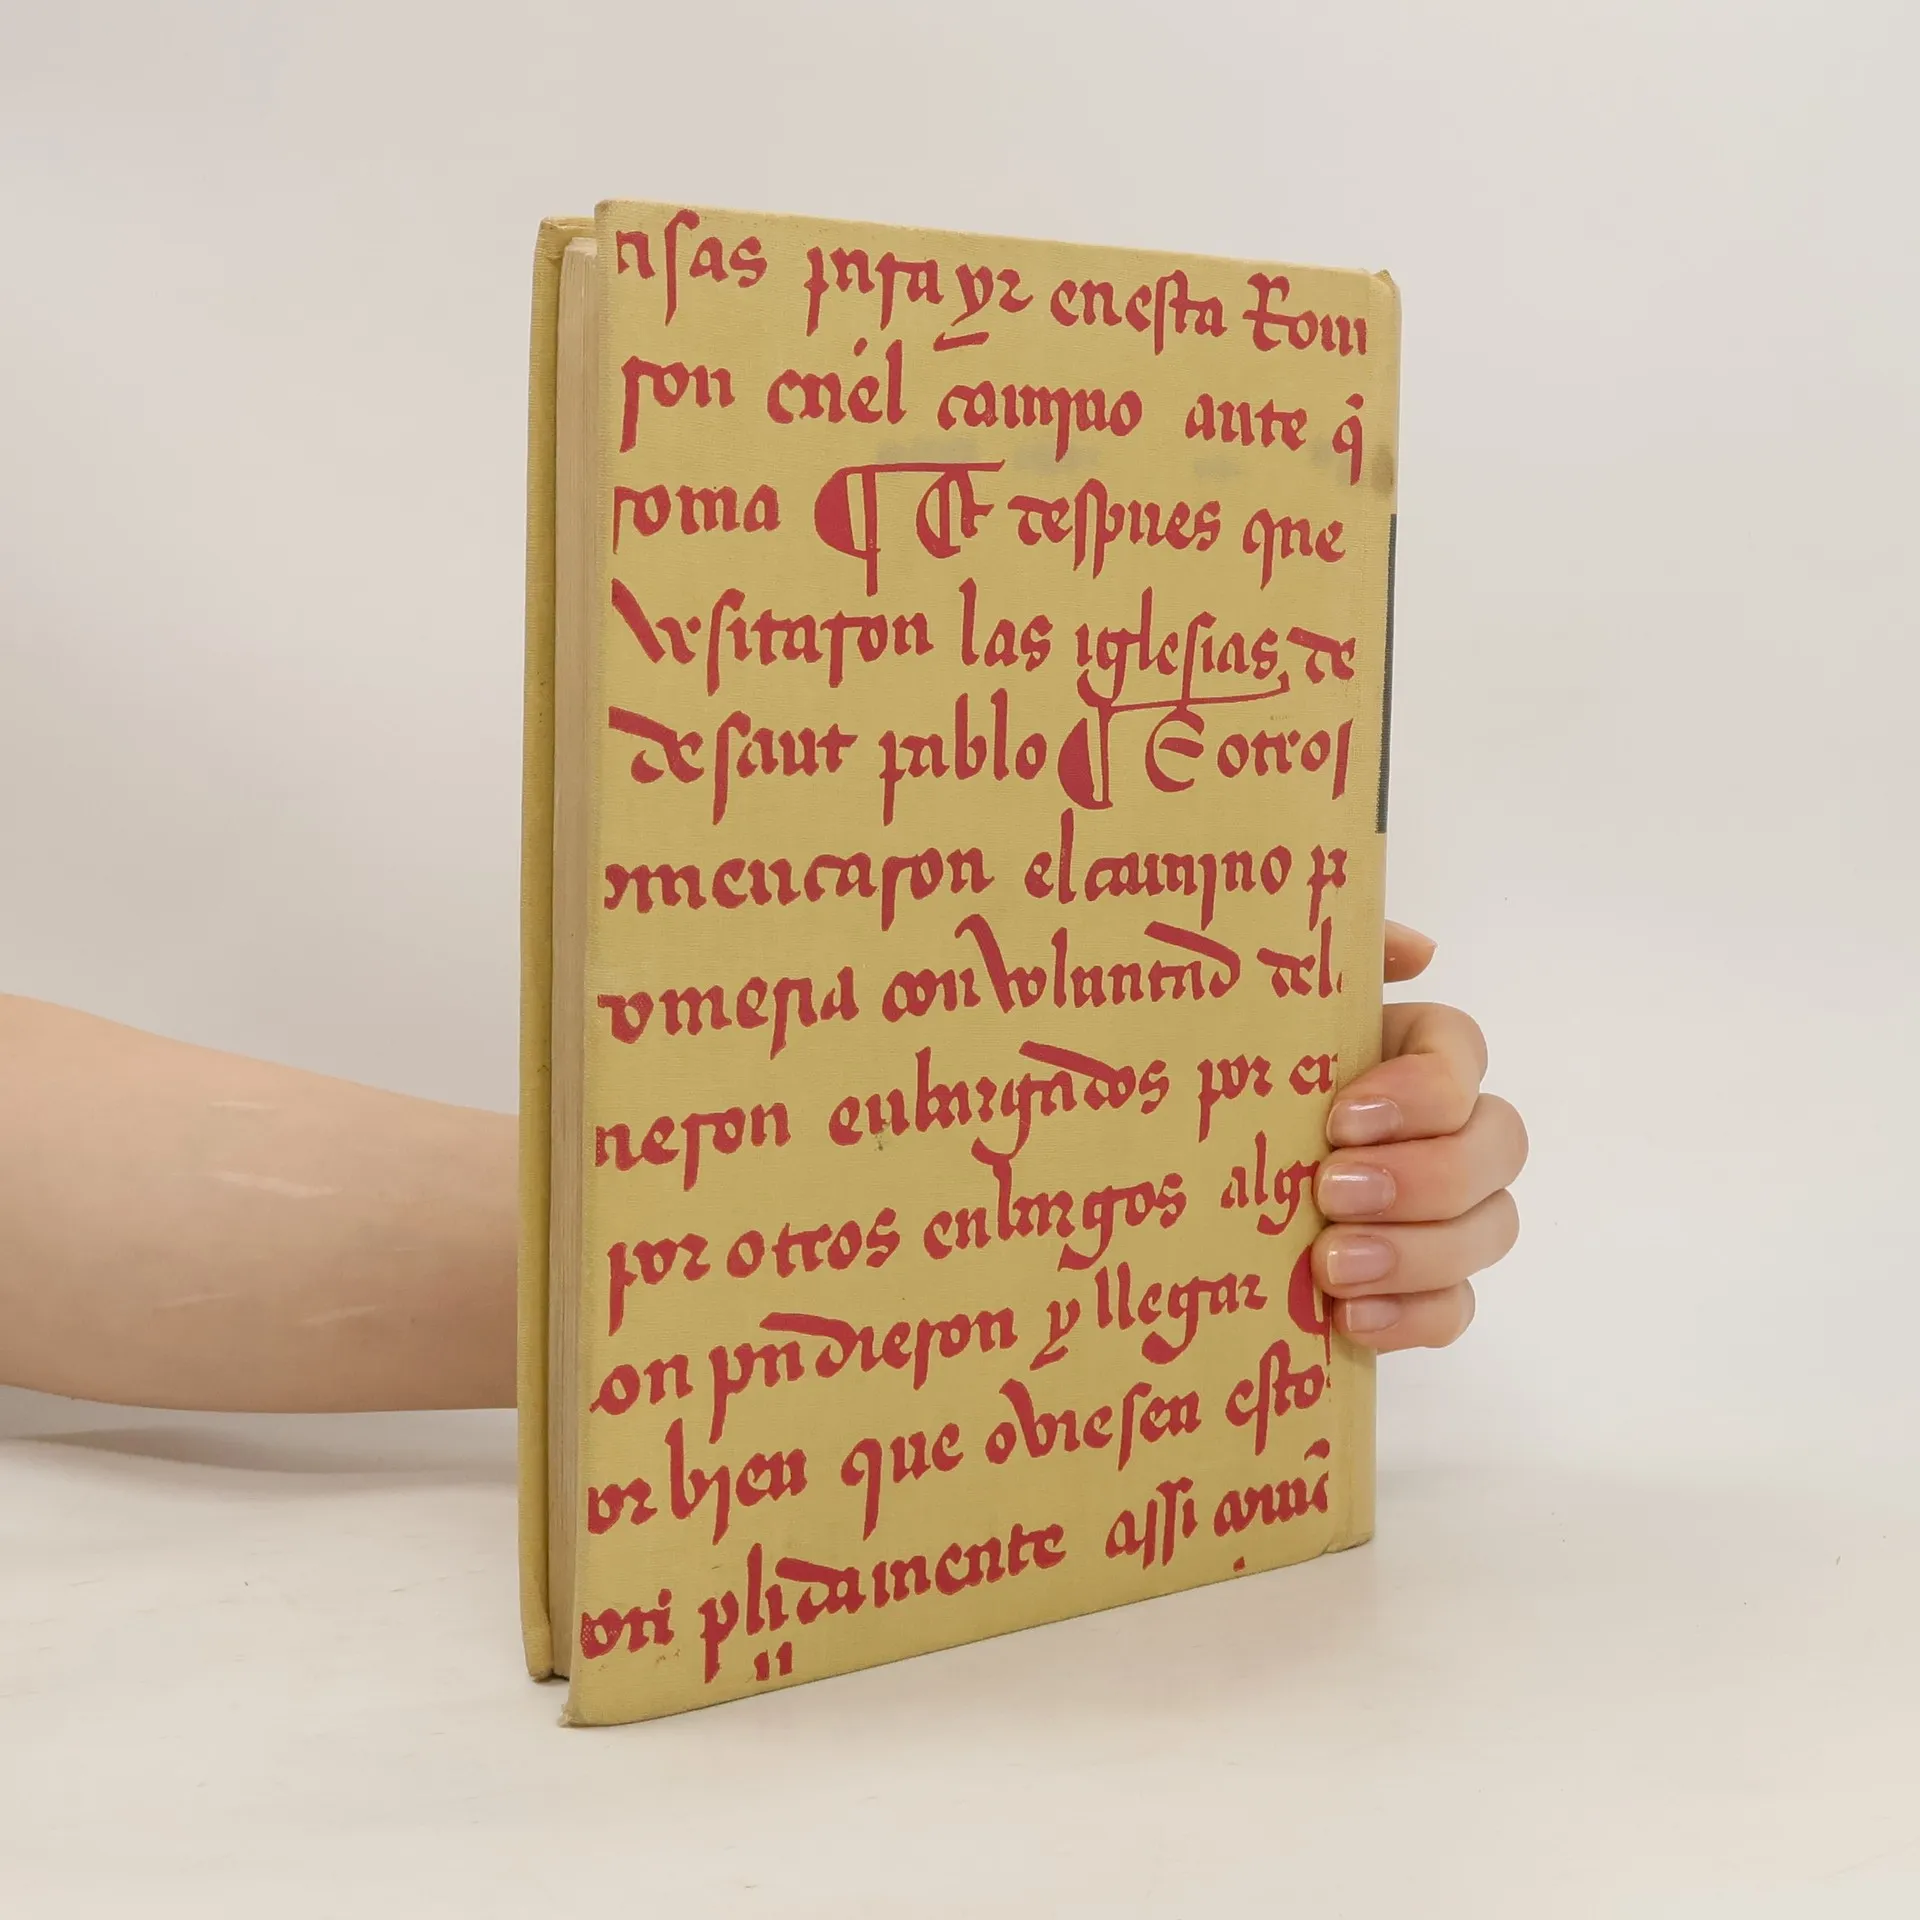 nsas para yr en esta Rom
ron enel camjno ante q̃
roma ¶ Et despues que
vesitaron las iglesias de
de sant pablo ¶ E otros
omencaron el camjno p
omeria con voluntad del
neron enbargados por en
por otros enbargos alg
on pudieron y llegar ¶
or bjen que oviesen esto
plidamente assi